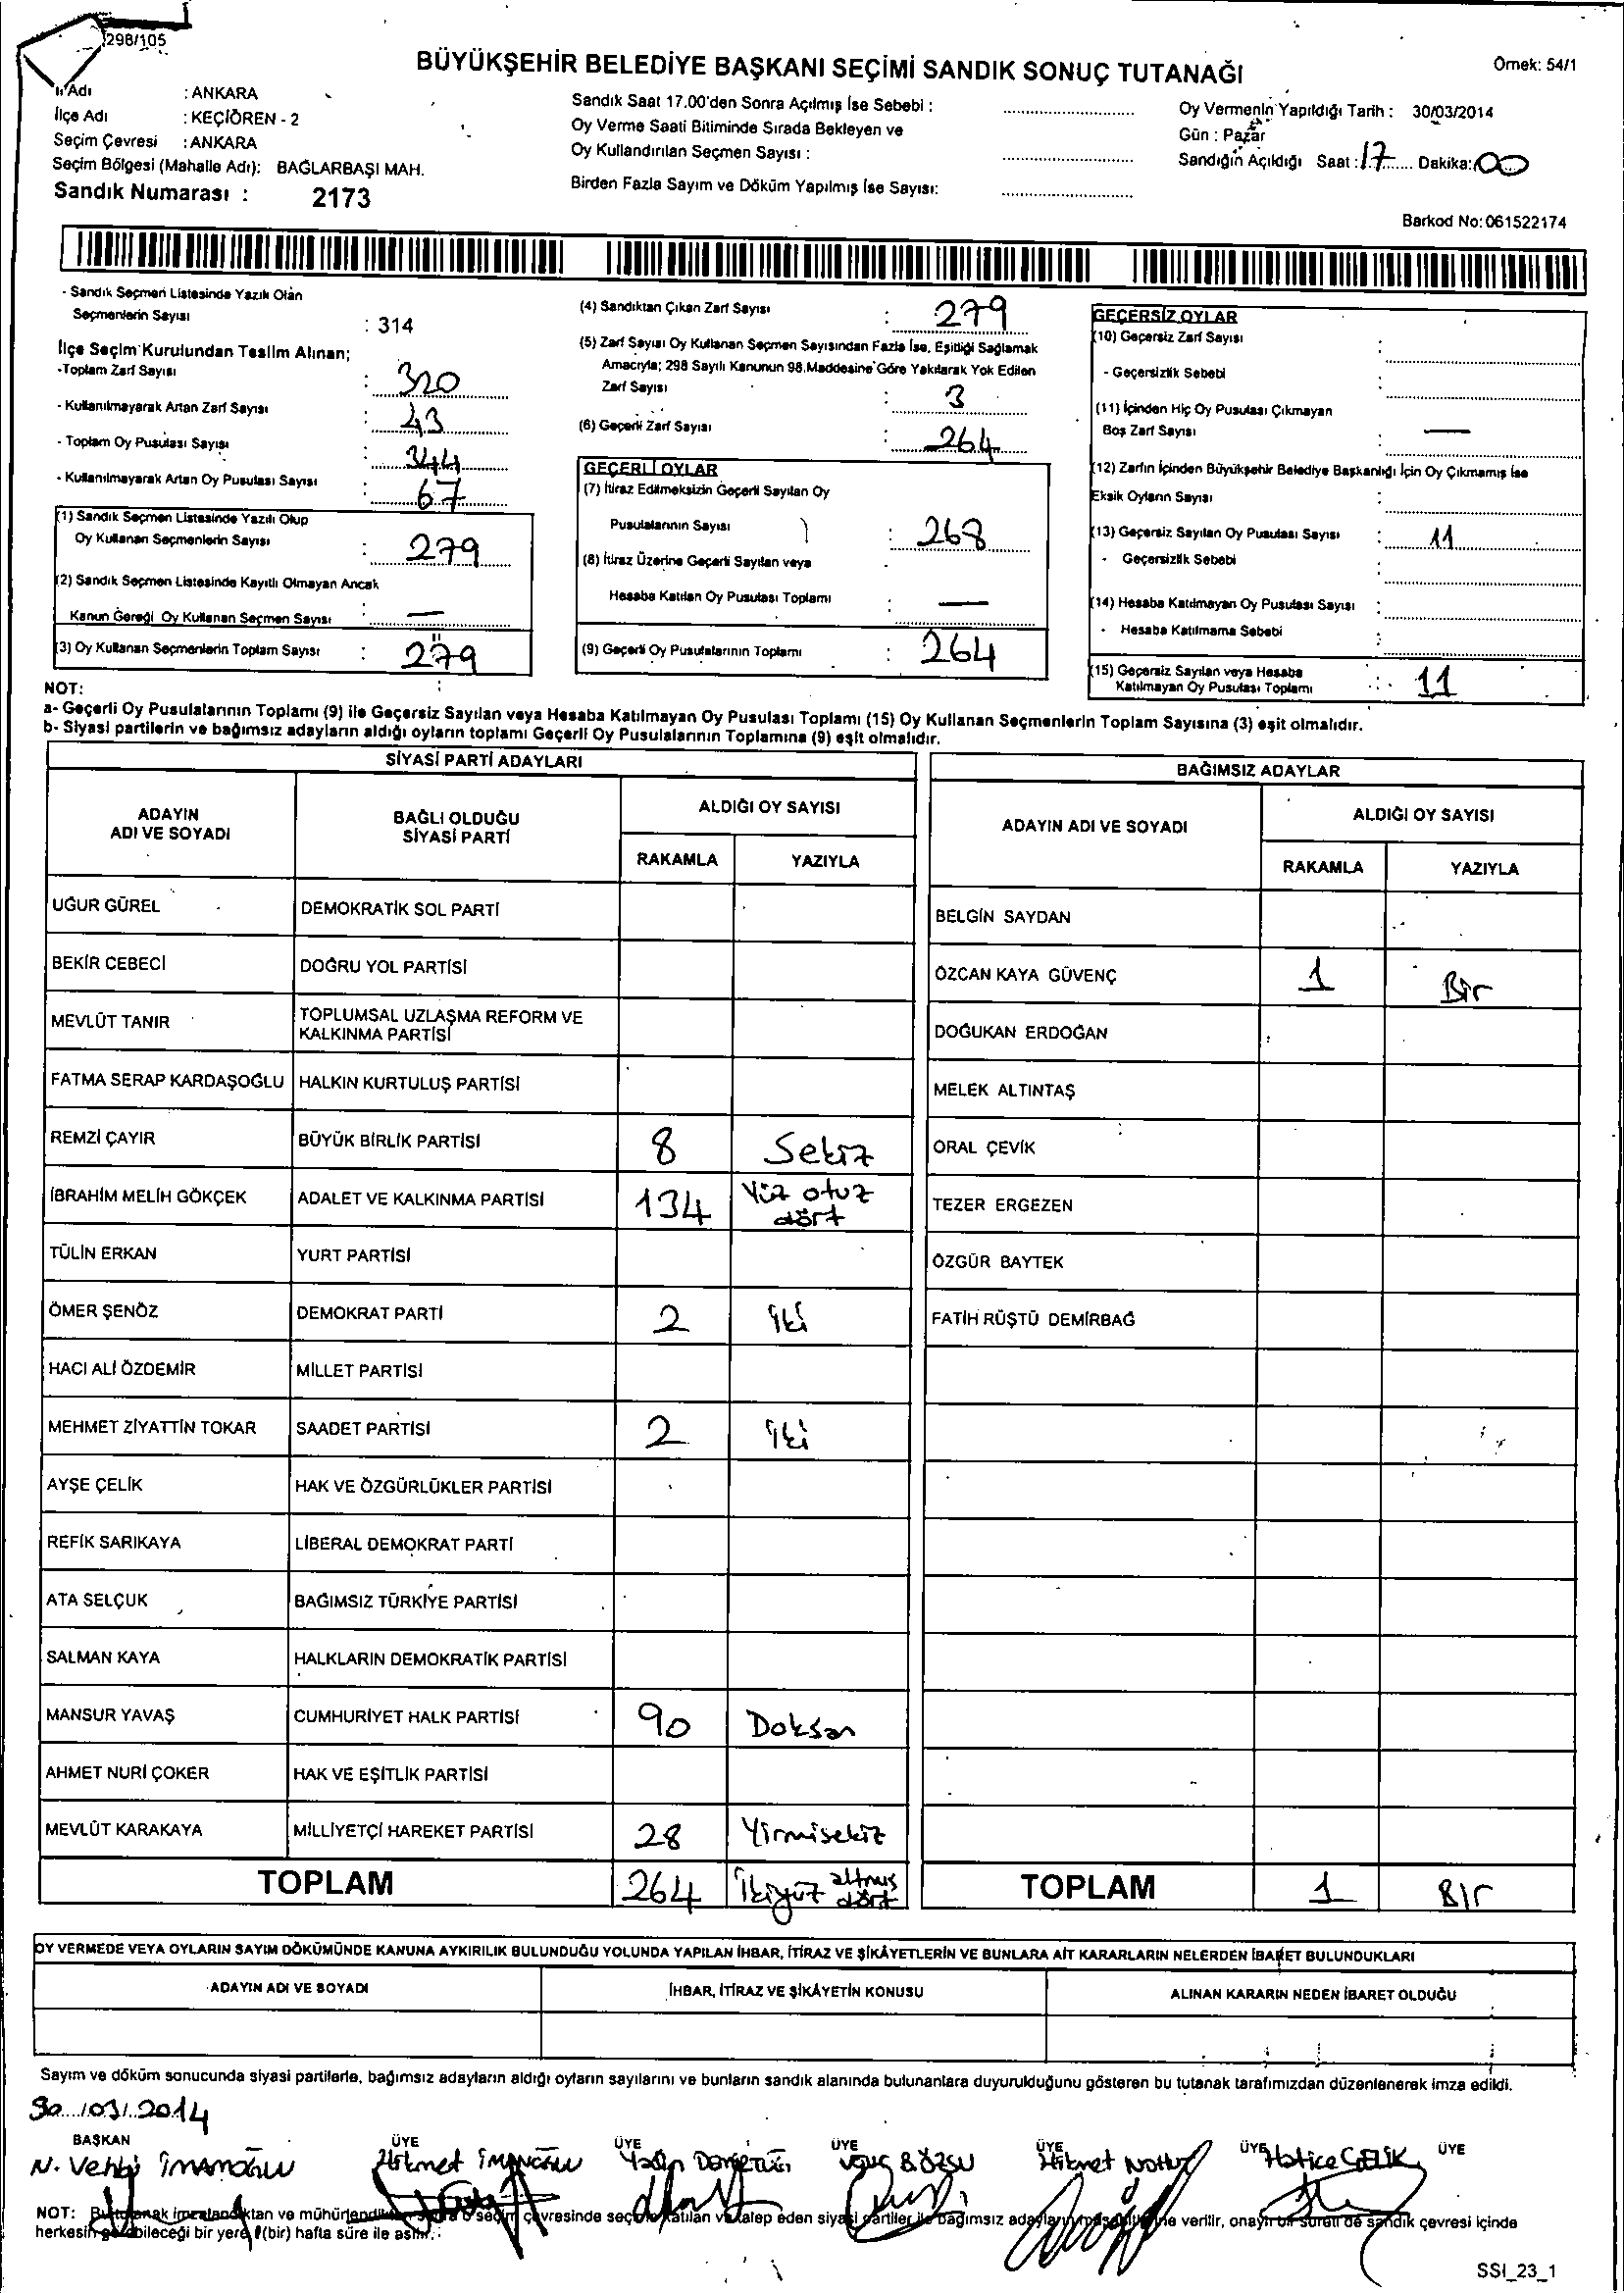 298/105
BÜYÜKŞEHİR BELEDİYE BAŞKANI SEÇİMİ SANDIK SONUÇ TUTANAĞI
Örnek: 54/1
İl Adı : ANKARA
İlçe Adı : KEÇİÖREN - 2
Seçim Çevresi : ANKARA
Seçim Bölgesi (Mahalle Adı): BAĞLARBAŞI MAH.
Sandık Numarası : 2173
Sandık Saat 17.00'den Sonra Açılmış İse Sebebi :
Oy Verme Saati Bitiminde Sırada Bekleyen ve
Oy Kullandırılan Seçmen Sayısı :
Birden Fazla Sayım ve Döküm Yapılmış İse Sayısı:
Oy Vermenin Yapıldığı Tarih : 30/03/2014
Gün : Pazar
Sandığın Açıldığı Saat : 17 Dakika: 00
Barkod No: 061522174
- Sandık Seçmen Listesinde Yazılı Olan
Seçmenlerin Sayısı : 314
İlçe Seçim Kurulundan Teslim Alınan;
-Toplam Zarf Sayısı : 320
- Kullanılmayarak Artan Zarf Sayısı : 43
- Toplam Oy Pusulası Sayısı : 344
- Kullanılmayarak Artan Oy Pusulası Sayısı : 67
(1) Sandık Seçmen Listesinde Yazılı Olup
Oy Kullanan Seçmenlerin Sayısı : 279
(2) Sandık Seçmen Listesinde Kayıtlı Olmayan Ancak
Kanun Gereği Oy Kullanan Seçmen Sayısı : —
(3) Oy Kullanan Seçmenlerin Toplam Sayısı : 279
(4) Sandıktan Çıkan Zarf Sayısı : 279
(5) Zarf Sayısı Oy Kullanan Seçmen Sayısından Fazla İse, Eşitliği Sağlamak
Amacıyla; 298 Sayılı Kanunun 98.Maddesine Göre Yakılarak Yok Edilen
Zarf Sayısı : 3
(6) Geçerli Zarf Sayısı : 264
GEÇERLİ OYLAR
(7) İtiraz Edilmeksizin Geçerli Sayılan Oy
Pusulalarının Sayısı : 268
(8) İtiraz Üzerine Geçerli Sayılan veya
Hesaba Katılan Oy Pusulası Toplamı : —
(9) Geçerli Oy Pusulalarının Toplamı : 264
GEÇERSİZ OYLAR
(10) Geçersiz Zarf Sayısı :
- Geçersizlik Sebebi :
(11) İçinden Hiç Oy Pusulası Çıkmayan
Boş Zarf Sayısı : —
(12) Zarfın İçinden Büyükşehir Belediye Başkanlığı İçin Oy Çıkmamış İse
Eksik Oyların Sayısı :
(13) Geçersiz Sayılan Oy Pusulası Sayısı : 11
- Geçersizlik Sebebi :
(14) Hesaba Katılmayan Oy Pusulası Sayısı :
- Hesaba Katılmama Sebebi :
(15) Geçersiz Sayılan veya Hesaba
Katılmayan Oy Pusulası Toplamı : 11
NOT:
a- Geçerli Oy Pusulalarının Toplamı (9) ile Geçersiz Sayılan veya Hesaba Katılmayan Oy Pusulası Toplamı (15) Oy Kullanan Seçmenlerin Toplam Sayısına (3) eşit olmalıdır.
b- Siyasi partilerin ve bağımsız adayların aldığı oyların toplamı Geçerli Oy Pusulalarının Toplamına (9) eşit olmalıdır.
SİYASİ PARTİ ADAYLARI
ADAYIN ADI VE SOYADI
BAĞLI OLDUĞU SİYASİ PARTİ
ALDIĞI OY SAYISI
RAKAMLA YAZIYLA
UĞUR GÜREL DEMOKRATİK SOL PARTİ
BEKİR CEBECİ DOĞRU YOL PARTİSİ
MEVLÜT TANIR TOPLUMSAL UZLAŞMA REFORM VE KALKINMA PARTİSİ
FATMA SERAP KARDAŞOĞLU HALKIN KURTULUŞ PARTİSİ
REMZİ ÇAYIR BÜYÜK BİRLİK PARTİSİ 8 Sekiz
İBRAHİM MELİH GÖKÇEK ADALET VE KALKINMA PARTİSİ 134 Yüz otuz dört
TÜLİN ERKAN YURT PARTİSİ
ÖMER ŞENÖZ DEMOKRAT PARTİ 2 iki
HACI ALİ ÖZDEMİR MİLLET PARTİSİ
MEHMET ZİYATTİN TOKAR SAADET PARTİSİ 2 iki
AYŞE ÇELİK HAK VE ÖZGÜRLÜKLER PARTİSİ
REFİK SARIKAYA LİBERAL DEMOKRAT PARTİ
ATA SELÇUK BAĞIMSIZ TÜRKİYE PARTİSİ
SALMAN KAYA HALKLARIN DEMOKRATİK PARTİSİ
MANSUR YAVAŞ CUMHURİYET HALK PARTİSİ 90 Doksan
AHMET NURİ ÇOKER HAK VE EŞİTLİK PARTİSİ
MEVLÜT KARAKAYA MİLLİYETÇİ HAREKET PARTİSİ 28 Yirmisekiz
TOPLAM 264 İkiyüz altmış dört
BAĞIMSIZ ADAYLAR
ADAYIN ADI VE SOYADI
ALDIĞI OY SAYISI
RAKAMLA YAZIYLA
BELGİN SAYDAN
ÖZCAN KAYA GÜVENÇ 1 Bir
DOĞUKAN ERDOĞAN
MELEK ALTINTAŞ
ORAL ÇEVİK
TEZER ERGEZEN
ÖZGÜR BAYTEK
FATİH RÜŞTÜ DEMİRBAĞ
TOPLAM 1 Bir
OY VERMEDE VEYA OYLARIN SAYIM DÖKÜMÜNDE KANUNA AYKIRILIK BULUNDUĞU YOLUNDA YAPILAN İHBAR, İTİRAZ VE ŞİKÂYETLERİN VE BUNLARA AİT KARARLARIN NELERDEN İBARET BULUNDUKLARI
ADAYIN ADI VE SOYADI İHBAR, İTİRAZ VE ŞİKÂYETİN KONUSU ALINAN KARARIN NEDEN İBARET OLDUĞU
Sayım ve döküm sonucunda siyasi partilerle, bağımsız adayların aldığı oyların sayılarını ve bunların sandık alanında bulunanlara duyurulduğunu gösteren bu tutanak tarafımızdan düzenlenerek imza edildi.
30/03/2014
BAŞKAN ÜYE ÜYE ÜYE ÜYE ÜYE ÜYE
N. Vehbi İMAMOĞLU Hikmet İMAMOĞLU Hikmet Hatice ÇELİK
NOT: Bu tutanak imzalandıktan ve mühürlendikten sonra o seçim çevresinde seçime katılan ve talep eden siyasi partiler ile bağımsız adayların verilir, onaylı bir sureti de sandık çevresi içinde
herkesin görebileceği bir yere 1(bir) hafta süre ile asılır.
SSI_23_1